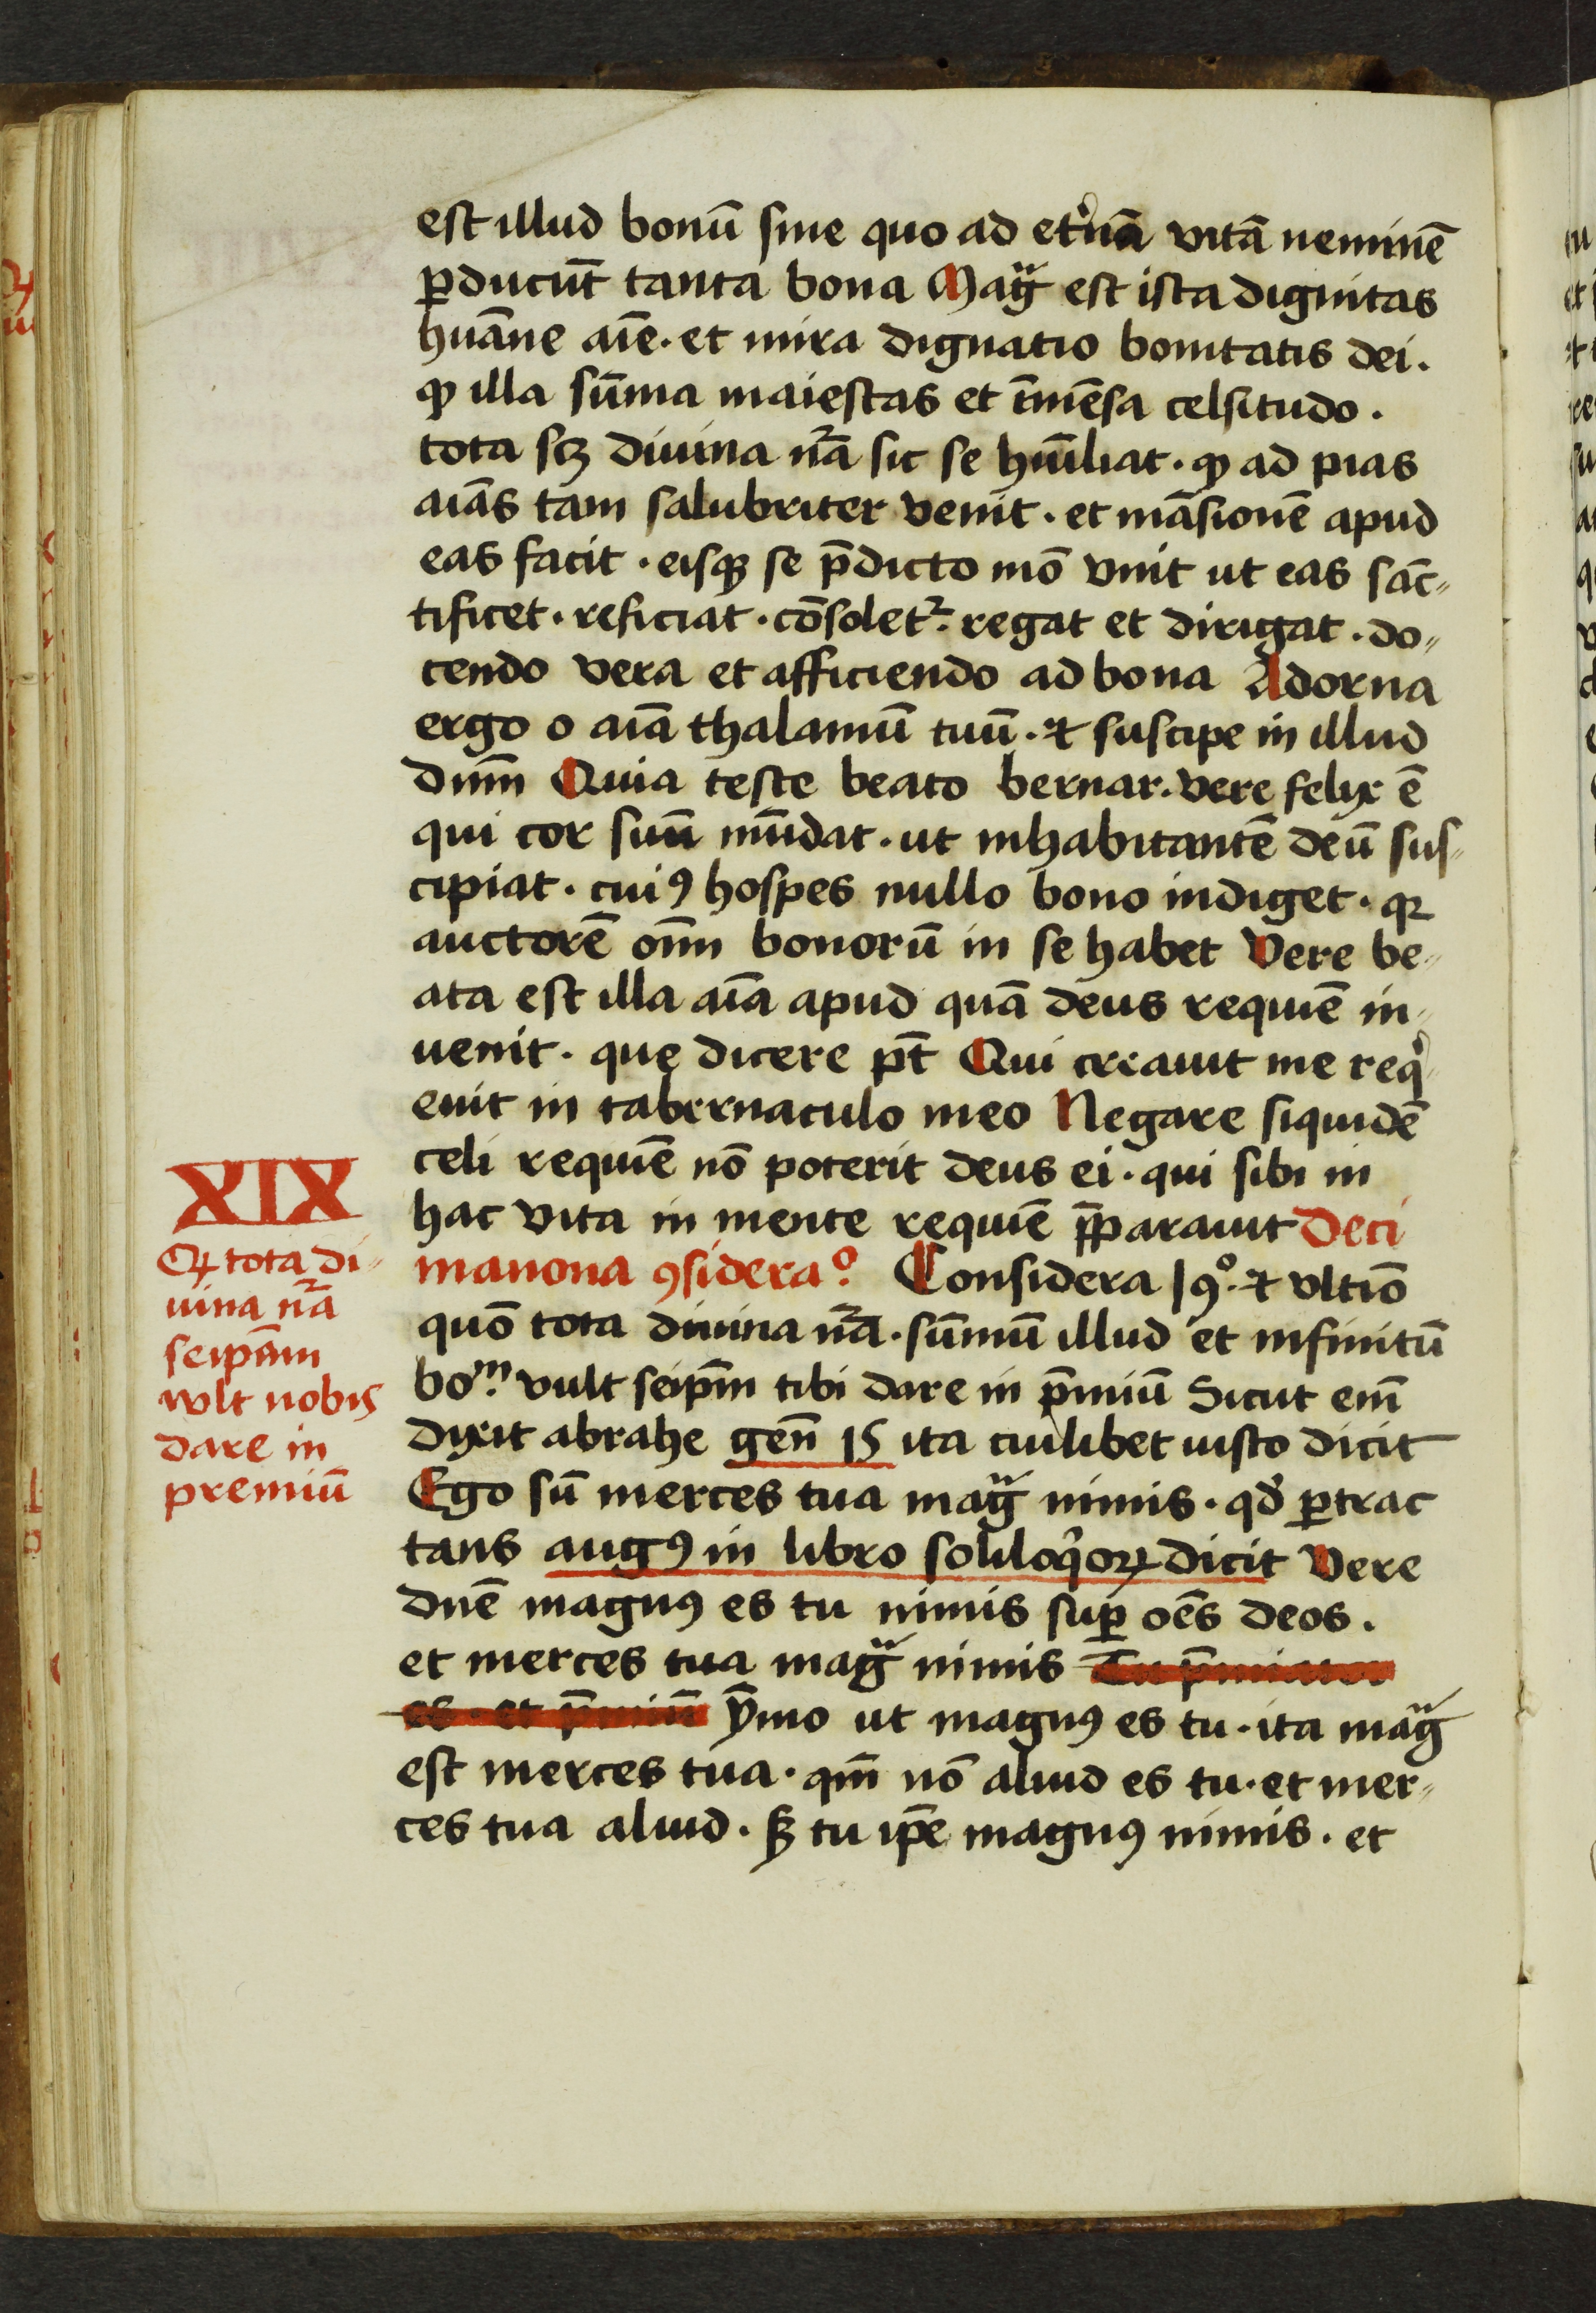 est illud bonū sine quo ad et'nā vitā neminē
ꝑducūt tanta bona Magͣ est ista dignitas
huāne aīe · et mira dignatio bonitatis dei ·
ꝙ illa sūma maiestas et īmēsa celsitudo ·
tota scꝫ diuina nr̄a sic se hūiliat · ꝙ ad pias
aīas tam salubriter venit · et māsionē apud
eas facit · eisqꝫ se p̄dicto mō vnit ut eas sāc„
tificet · reficiat · cōsolet᷑ · regat et dirigat · do„
cendo vera et afficiendo ad bona Adorna
ergo o aīa thalamū tuū · ⁊ suscipe in illud
dn̄m Quia teste beato bernar. vere felix ē
qui cor suū mūdat · ut inhabitantē deū sus„
cipiat · cuiꝯ hospes nullo bono indiget · qꝛ
auctorē oīm bonorū in se habet Vere be„
ata est illa aīa apud quā deus requiē in„
uenit · que dicere pt̄ Qui creauit me reqͥ„
euit in tabernaculo meo Negare siquidē
celi requiē nō poterit deus ei · qui sibi in
hac vita in mente requiē p̄parauit Deci
manona ꝯsideraº. Considera 19º. ⁊ vltīo
quō tota diuina nr̄a · sūmū illud et infinitū
boᵐ. vult seip̄m tibi dare in p̄miū Sicut em̄
dixit abrahe gen̄ 15 ita cuilibet iusto dicit
Ego sū merces tua magͣ nimis · qd' ꝑtrac
tans augꝯ in libro soliloqͥoꝝ dicit Vere
dn̄e magnꝯ es tu nimis suꝑ oēs deos ·
et merces tua magͣ nimis Tu p̄miator
es · et p̄miū ȳmo ut magnꝯ es tu · ita magͣ
est merces tua · qm̄ nō aliud es tu · et mer„
ces tua aliud · sꝫ tu ip̄e magnꝯ nimis · et
XIX
Qꝙ tota di„
uina nr̄a
seipām
wlt nobis
dare in
premiū